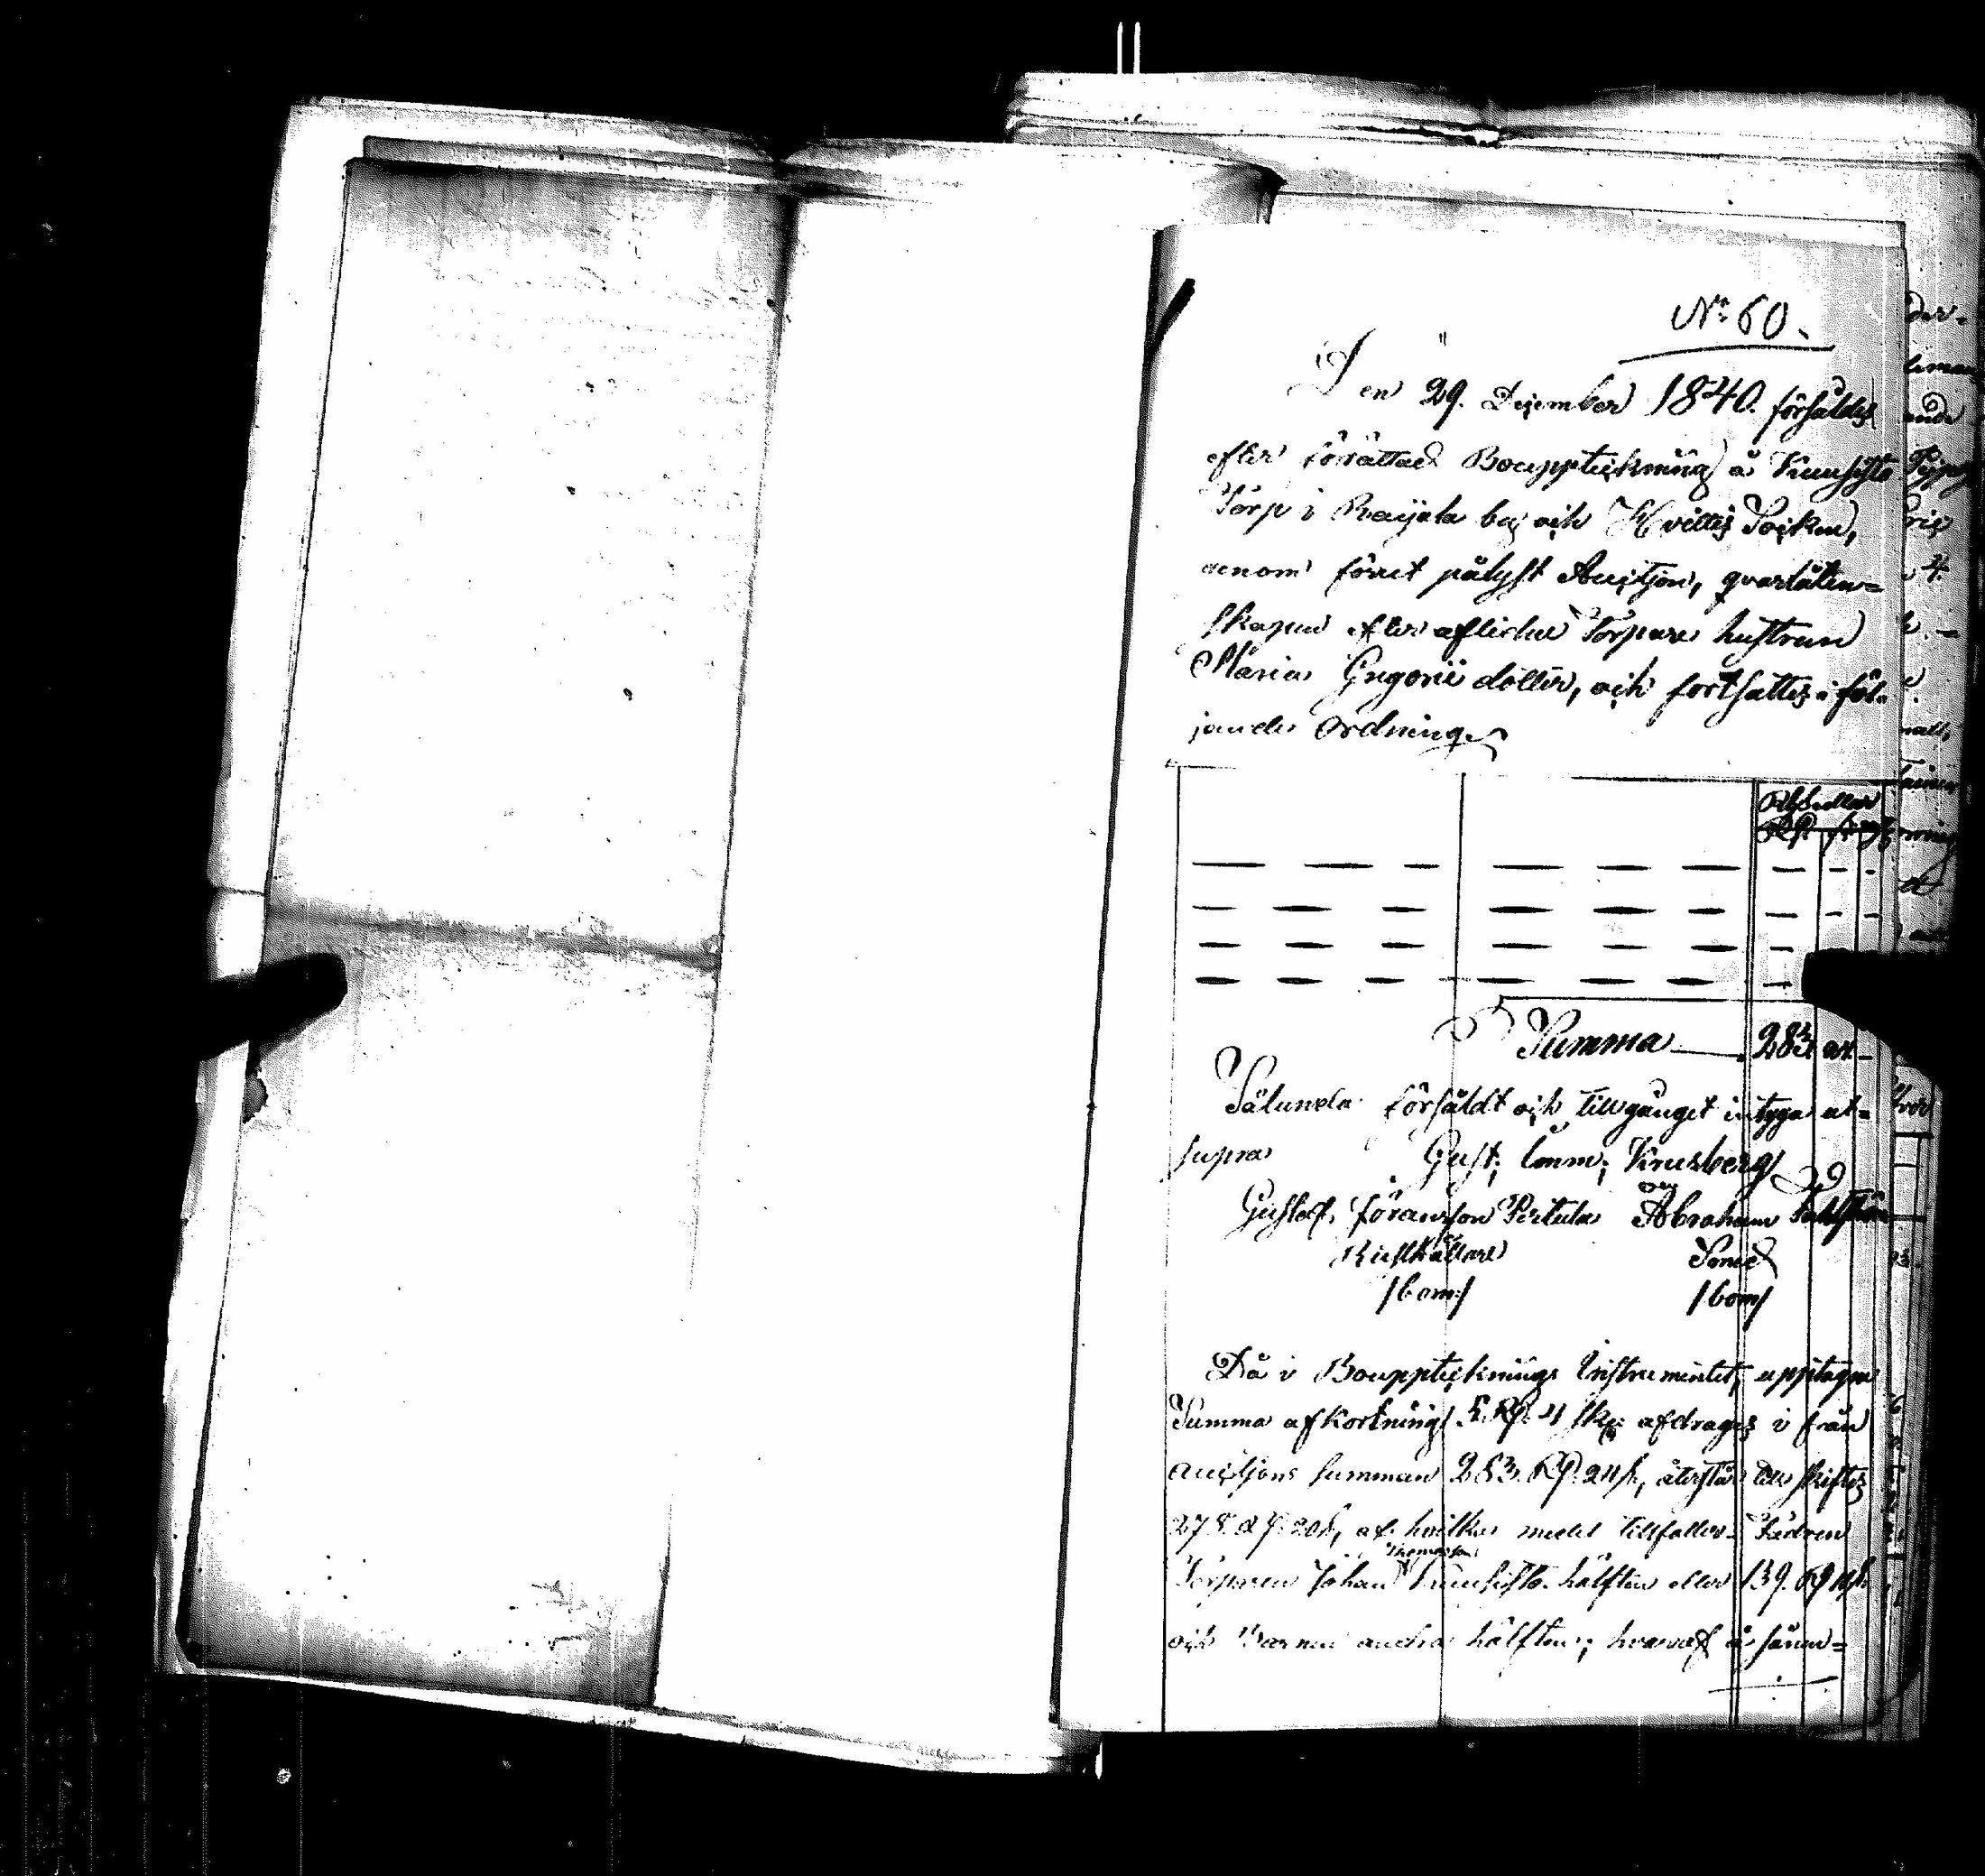 No 60.
Den 29. December 1840. försåldes
efter förrättad Bouppteckning å Kuusisto
Torp i Raijala by och Hvittis Socken,
genom förut pålyst Auctjon, qvarlåten-
skapen efter aflidne Torpare hustrun
Maria Grigorii dotter, och fortsattes i föl-
jande ordning.
Rbsedlar
Rp. sk
Summa 283. 24. -
Sålunda försåldt och tillgånget intyga ut-
supra Gust: Emm: Krusberg
Gustaf Göransson Pertula Abraham
Rusthållare Smed
/bom:/ /bom/
Då i Bouppteknings Instrumentet, upptagne
Summa afkortning 5. Rp. 4 sk: afdrages i från
auctjons summan 283. Rp. 24 s, återstår till skiftes
278. Rp. 20 s, af hvilka medel tillfaller Fadren
Thomasson
Torparen Johan Kuusisto hälften eller 139. Rp 10 s
och Barnen andra hälften; hvaraf å särun-